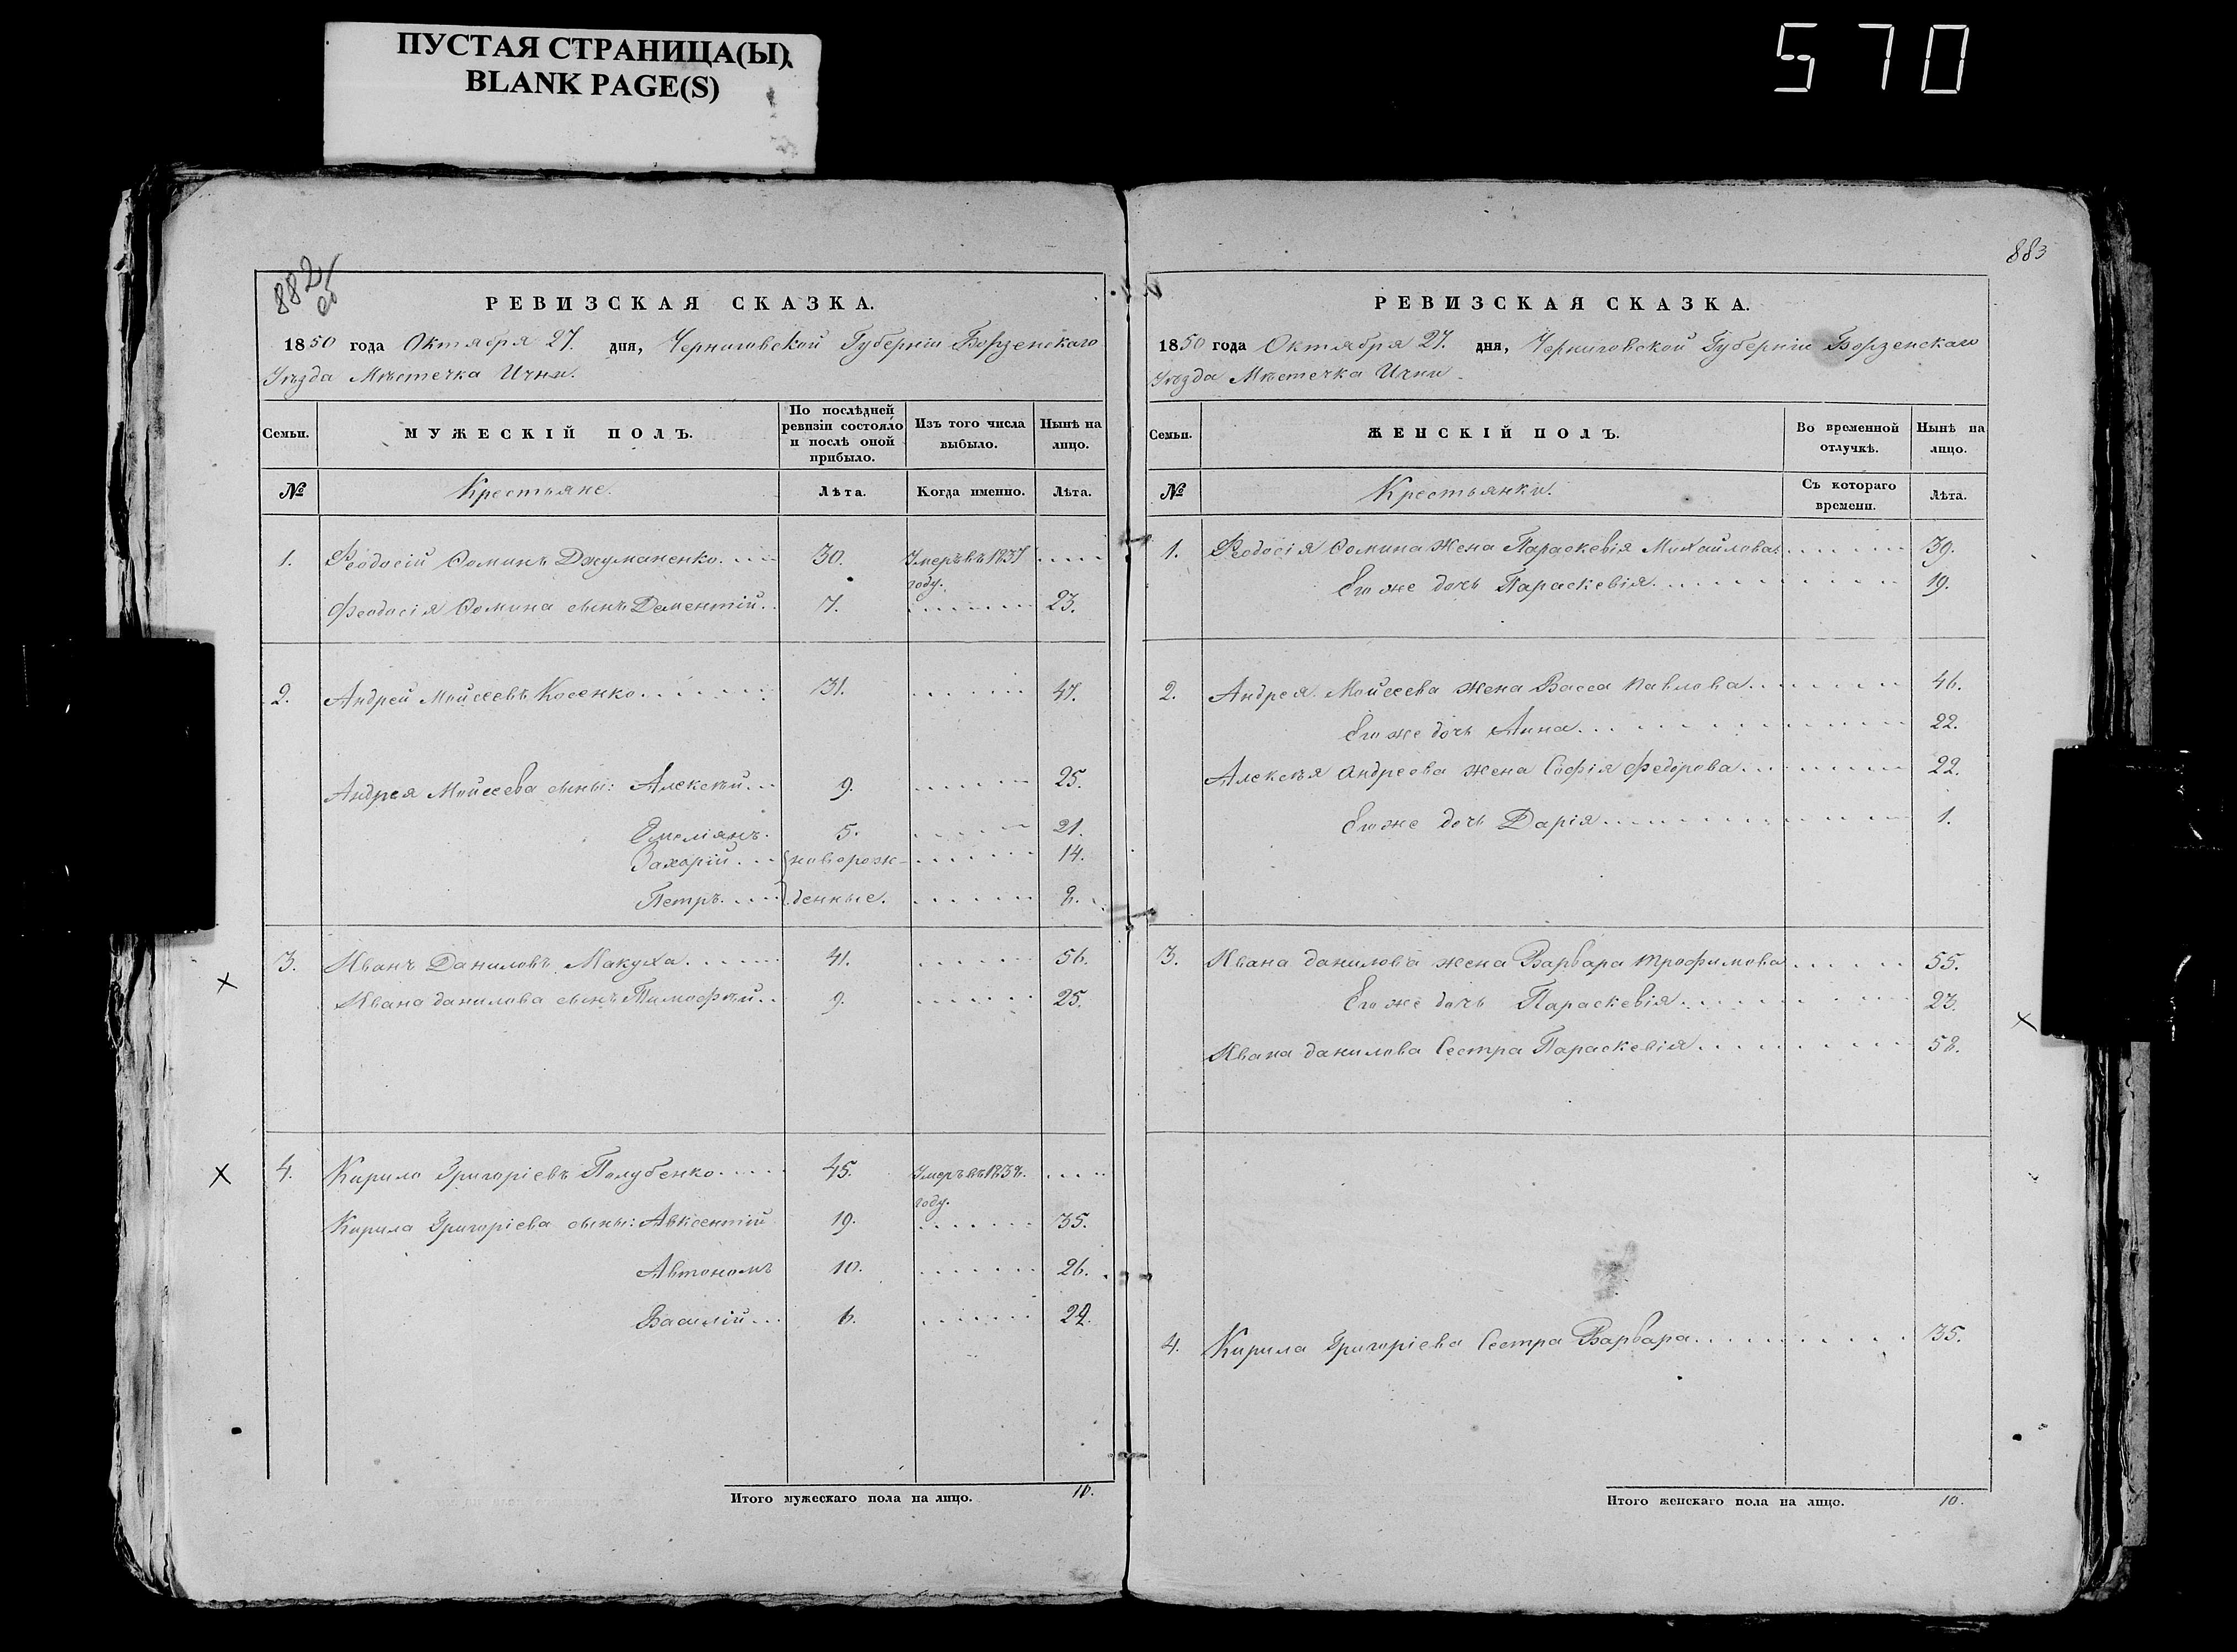 ПУСТАЯ СТРАНИЦА(Ы)
BLANK PAGE(S)
570
882
883
РЕВИЗСКАЯ СКАЗКА.
1850 года Октября 27. дня, Черниговской Губерніи Борзенскаго
Уѣзда Мѣстечка Ични.
Семьи. МУЖЕСКІЙ ПОЛЪ. По послѣдней ревизіи состояло и послѣ оной прибыло. Изъ того числа выбыло. Нынѣ на лицо.
№ Крестьяне. Лѣта. Когда именно. Лѣта.
1. Феодосій Фоминъ Джуманенко 30. Умеръ въ 1837
году.
Феодосія Фомина сынъ Дементій 7. 23.
2. Андрей Мойсеевъ Косенко 31. 47.
Андрея Мойсеева сыны: Алексѣй 9. 25.
Емеліянъ. 5. 21.
Захарій новорож- 14.
Петръ денные.
3. Иванъ Даниловъ Макуха 41. 56.
Ивана Данилова сынъ Тимофѣй 9. 25.
4. Кирило Григоріевъ Полубенко 45. Умеръ въ 1838.
году.
Кирила Григоріева сыны: Авксентій 19. 35.
Автономъ 10. 26.
Василій 6. 22.
Итого мужескаго пола на лицо. 10.
РЕВИЗСКАЯ СКАЗКА.
1850 года Октября 27. дня, Черниговской Губерніи Борзенскаго
Уѣзда Мѣстечка Ични
Семьи. ЖЕНСКІЙ ПОЛЪ. Во временной отлучкѣ. Нынѣ на лицо.
№ Крестьянки. Съ котораго времени. Лѣта.
1. Феодосія Фомина жена Параскевія Михайлова 39.
Его же дочь Параскевія 19.
2. Андрея Мойсеева жена Васса Павлова 46.
Его же дочь Анна 22.
Алексѣя Андреева жена Софія Федорова 22.
Его же дочь Дарія 1.
3. Ивана Данилова жена Варвара Трофимова 55.
Его же дочь Параскевія 23.
Ивана Данилова Сестра Параскевія 58.
4. Кирила Григоріева Сестра Варвара 35.
Итого женскаго пола на лицо. 10.